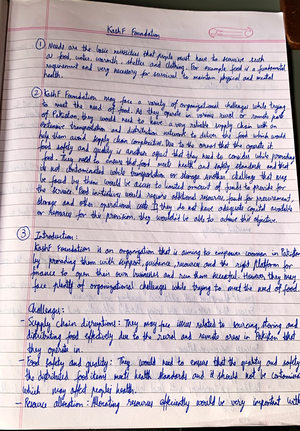 Kashf Foundation
① Needs are the basic necessities that people must have to survive such
as food, water, warmth, shelter and clothing. For example food is a fundamental
requirement and very necessary for survival to maintain physical and mental
health.
② Kashf Foundation may face a variety of organizational challenges while trying
to meet the need of food. As they operate in various rural or remote parts
of Pakistan, they would need to have a very reliable supply chain with an
extensive transportation and distribution network to deliver the food which would
help them avoid supply chain complexities. Due to the areas that they operate it
food safety and quality is another aspect that they need to consider while providing
food. They need to ensure that food meet health and safety standards and that it
is not contaminated while transportation or storage. Another challenge that may
be faced by them would be access to limited amount of funds to provide for
the service. Food initiatives would require additional resources, funds for procurement,
storage and other operational costs. If they do not have adequate capital available
or reserves for this provision, they wouldn't be able to achieve this objective.
③ Introduction:
Kashf Foundation is an organization that is aiming to empower women in Pakistan
by providing them with support, guidance, resources and the right platform for
finance to open their own businesses and run them successful. However they may
face plenty of organizational challenges while trying to meet the need of food.
Challenges:
- Supply chain disruptions: They may face issues related to sourcing, storing and
distributing food effectively due to the rural and remote areas in Pakistan that
they operate in.
- Food safety and quality: They would need to ensure that the quality and safety
the distributed food items meets health standards and it should not be contaminated
which may affect peoples health.
- Resource allocation: Allocating resources efficiently would be very important with